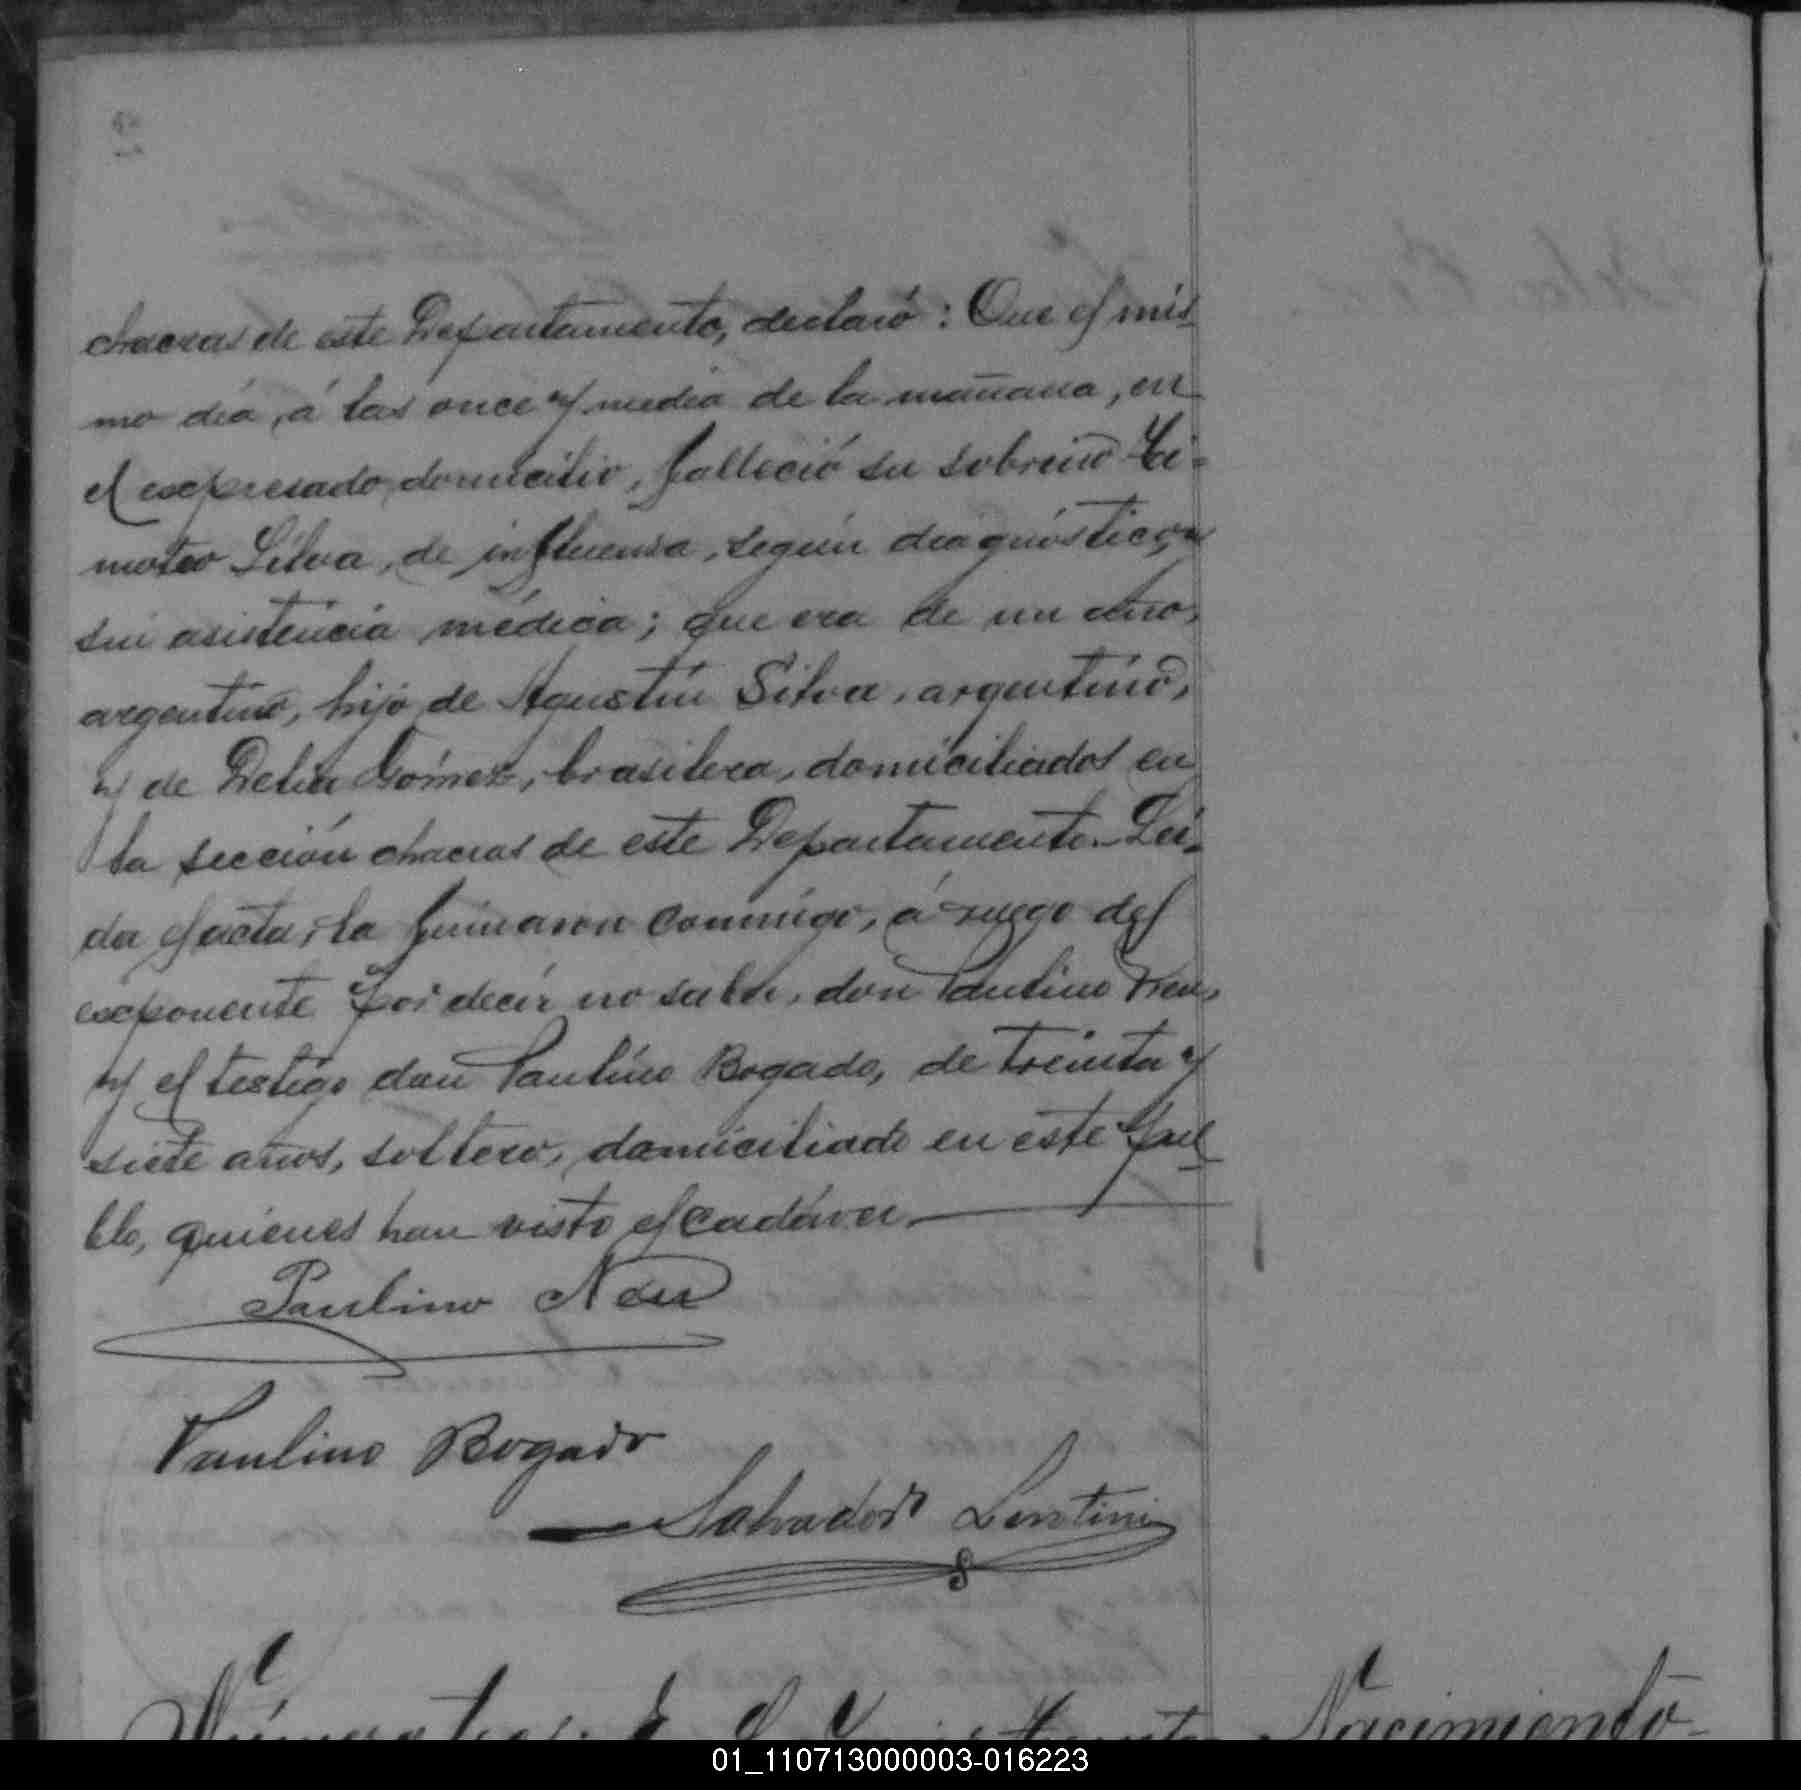 chacras de este Departamento, declaró: Que el mis-
mo día, á las once y media de la mañana, en
el expresado domicilio, falleció su sobrino Ti-
moteo Silva, de influenza, según diagnóstico,
sin asistencia médica; que era de un año,
argentino, hijo de Agustín Silva, argentino,
y de Delia Gómez, brasilera, domiciliados en
la sección chacras de este Departamento.- Leí-
da el acta, la firmaron conmigo, á ruego del
exponente por decir no saber, don Paulino Neu,
y el testigo don Paulino Bogado, de treinta y
siete años, soltero, domiciliado en este pue-
blo, quienes han visto el cadáver.
Paulino Neu
Paulino Bogado
Salvador Lentini
Número tres.
Nacimiento-
01_110713000003-016223